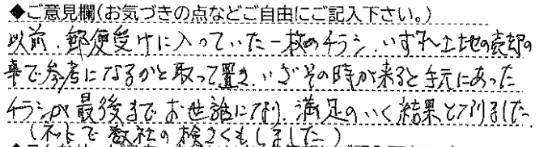 ◆ご意見欄(お気づきの点などご自由にご記入下さい。)
以前、郵便受けに入っていた一枚のチラシ、いずれ土地の売却の
事で参考になるかと取って置き、いざその時が来ると手元にあった
チラシが最後までお世話になり、満足のいく結果となりました
(ネットで数社の検さくもしました)